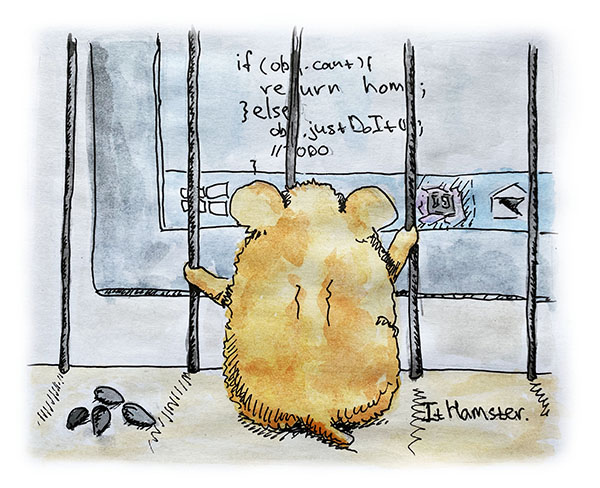 if (obj.count){
return home;
}else
obj.justDoIt();
//TODO
}
It Hamster.